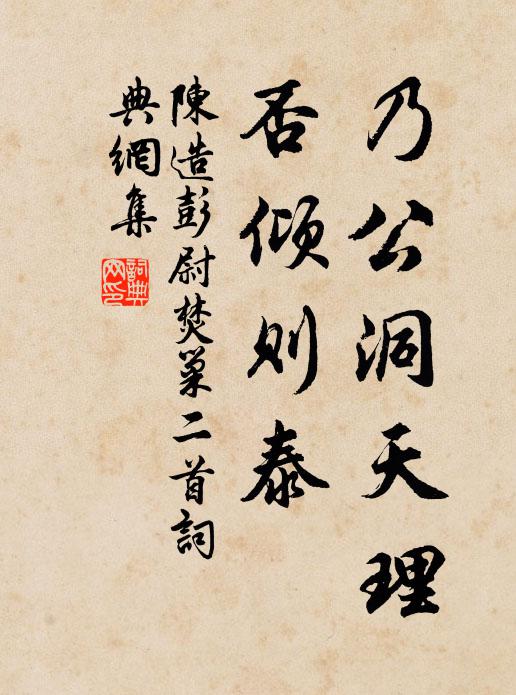 乃公洞天理
否倾则泰
陳造彭尉焚巢二首詞
典網集
詞典
网印